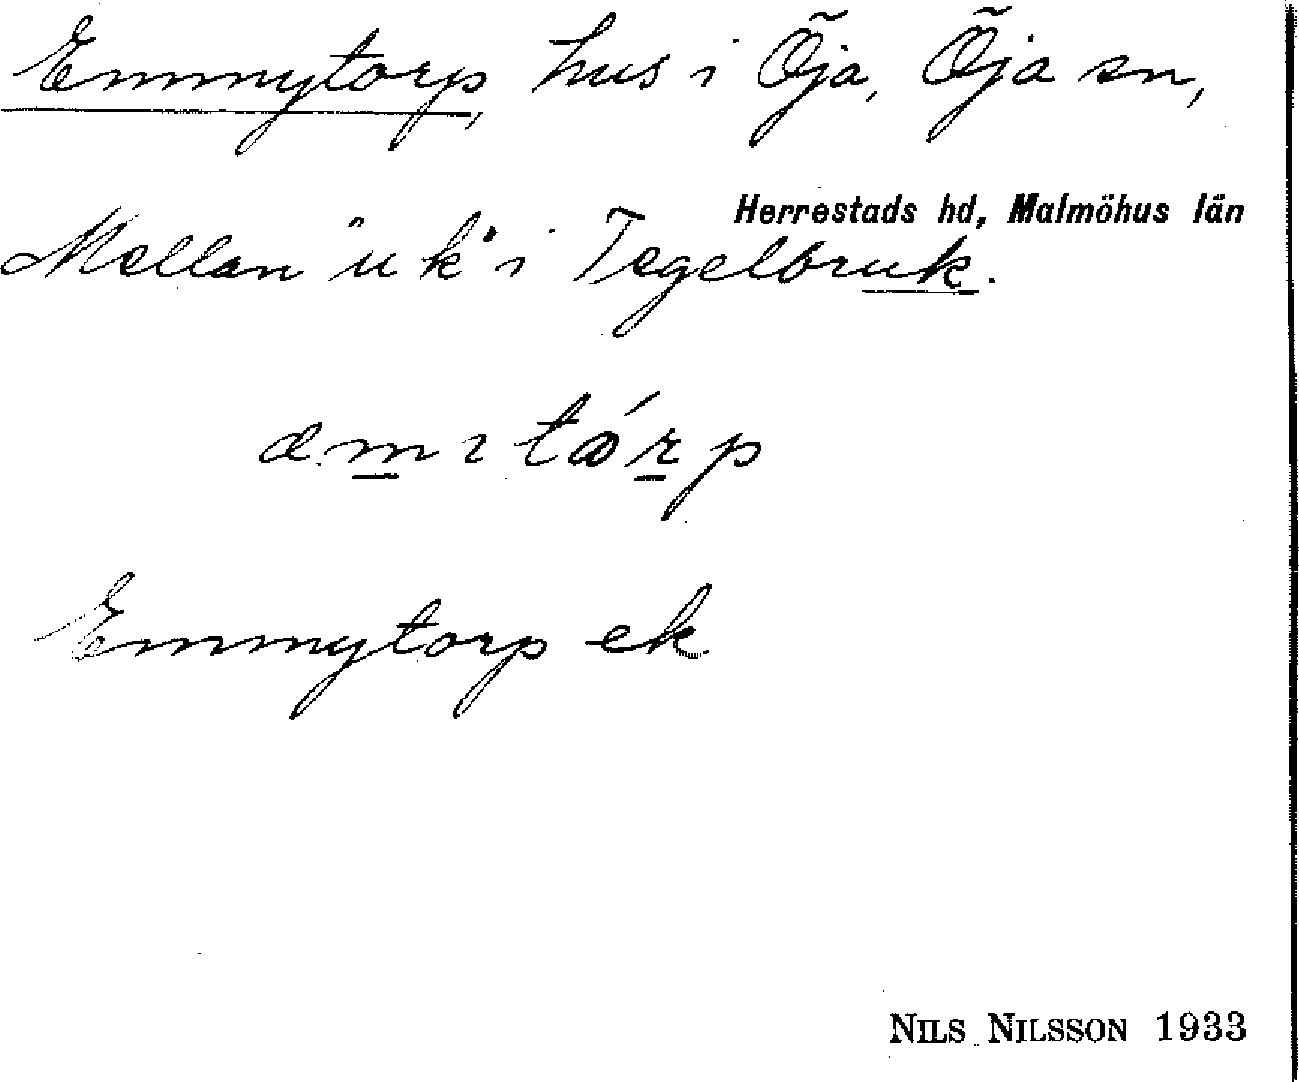 Emmytorp, hus i Öja, Öja sn,
Herrestads hd, Malmöhus län
Mellan "uk" i Tegelbruk.
æmıtǿrp
Emmytorp ek.
NILS NILSSON 1933